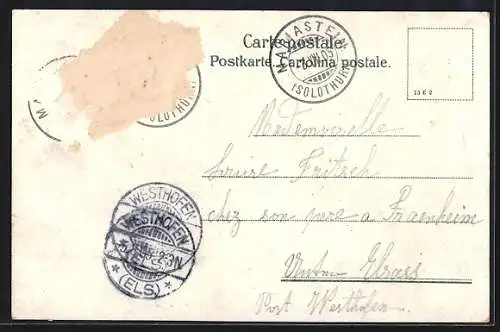 Carte postale.
Postkarte. Cartolina postale.
MARIASTEIN
(SOLOTHURN)
13 6 2
Mademoiselle
Louise Fritsch
chez son père a Fraenheim
Unter Elsass
Post Westhofen
WESTHOFEN
WESTHOFEN
* (ELS) *